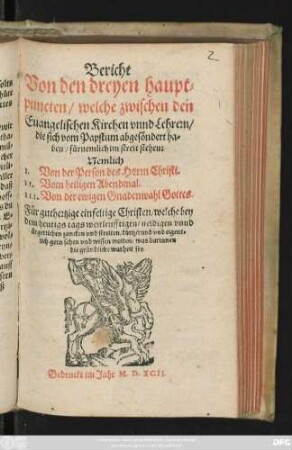 2
Bericht
Von den dreyen haupt-
puncten / welche zwischen den
Euangelischen Kirchen vnnd Lehrern /
die sich vom Papstum abgesöndert ha-
ben / fürnemlich im streit stehen:
Nemlich
I. Von der Person des Herrn Christi.
II. Vom heiligen Abendmal.
III. Von der ewigen Gnadenwahl Gottes.
Für guthertzige einfeltige Christen / welche bey
dem heutigs tags
vnd
gern sehen vnd wissen wolten / was hierinnen
die gründtliche warheit sey.
Gedruckt im Jahr M. D. XCII.